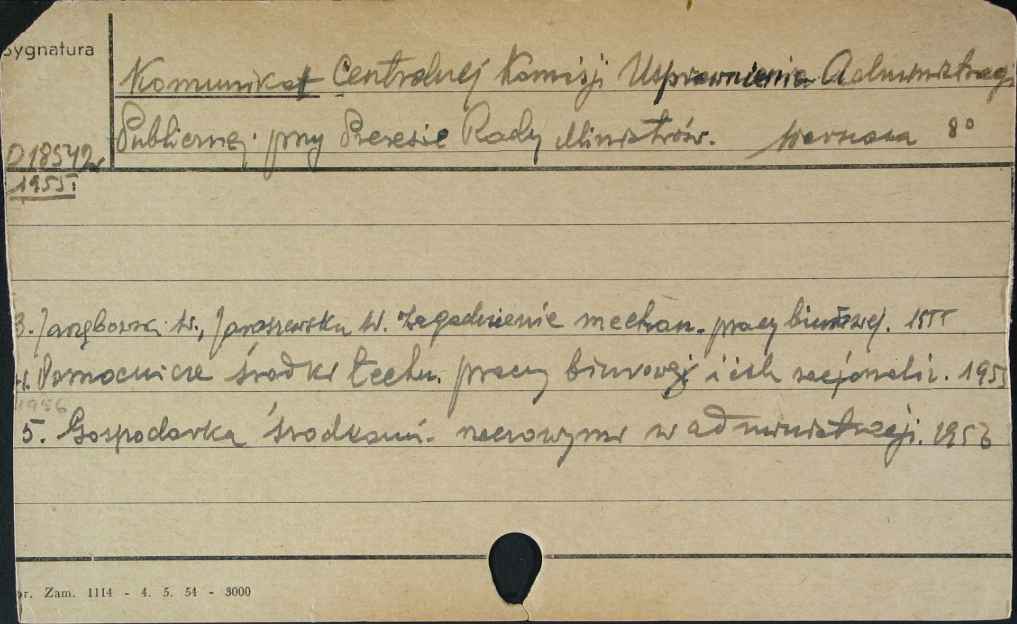 Sygnatura
Komunikat Centralnej Komisji Usprawnienia Administracji
Publicznej przy Prezesie Rady Ministrów. Warszawa 8°
D18542
1955
3. Jarzębowski W., Jaroszewska W. Zagadnienie mechan. pracy biurowej. 1955
4. Pomocnicze środki techn. pracy biurowej i ich racjonaliz. 1955
1956
5. Gospodarka środkami rzeczowymi w administracji. 1956
pr. Zam. 1114 - 4. 5. 54 - 3000